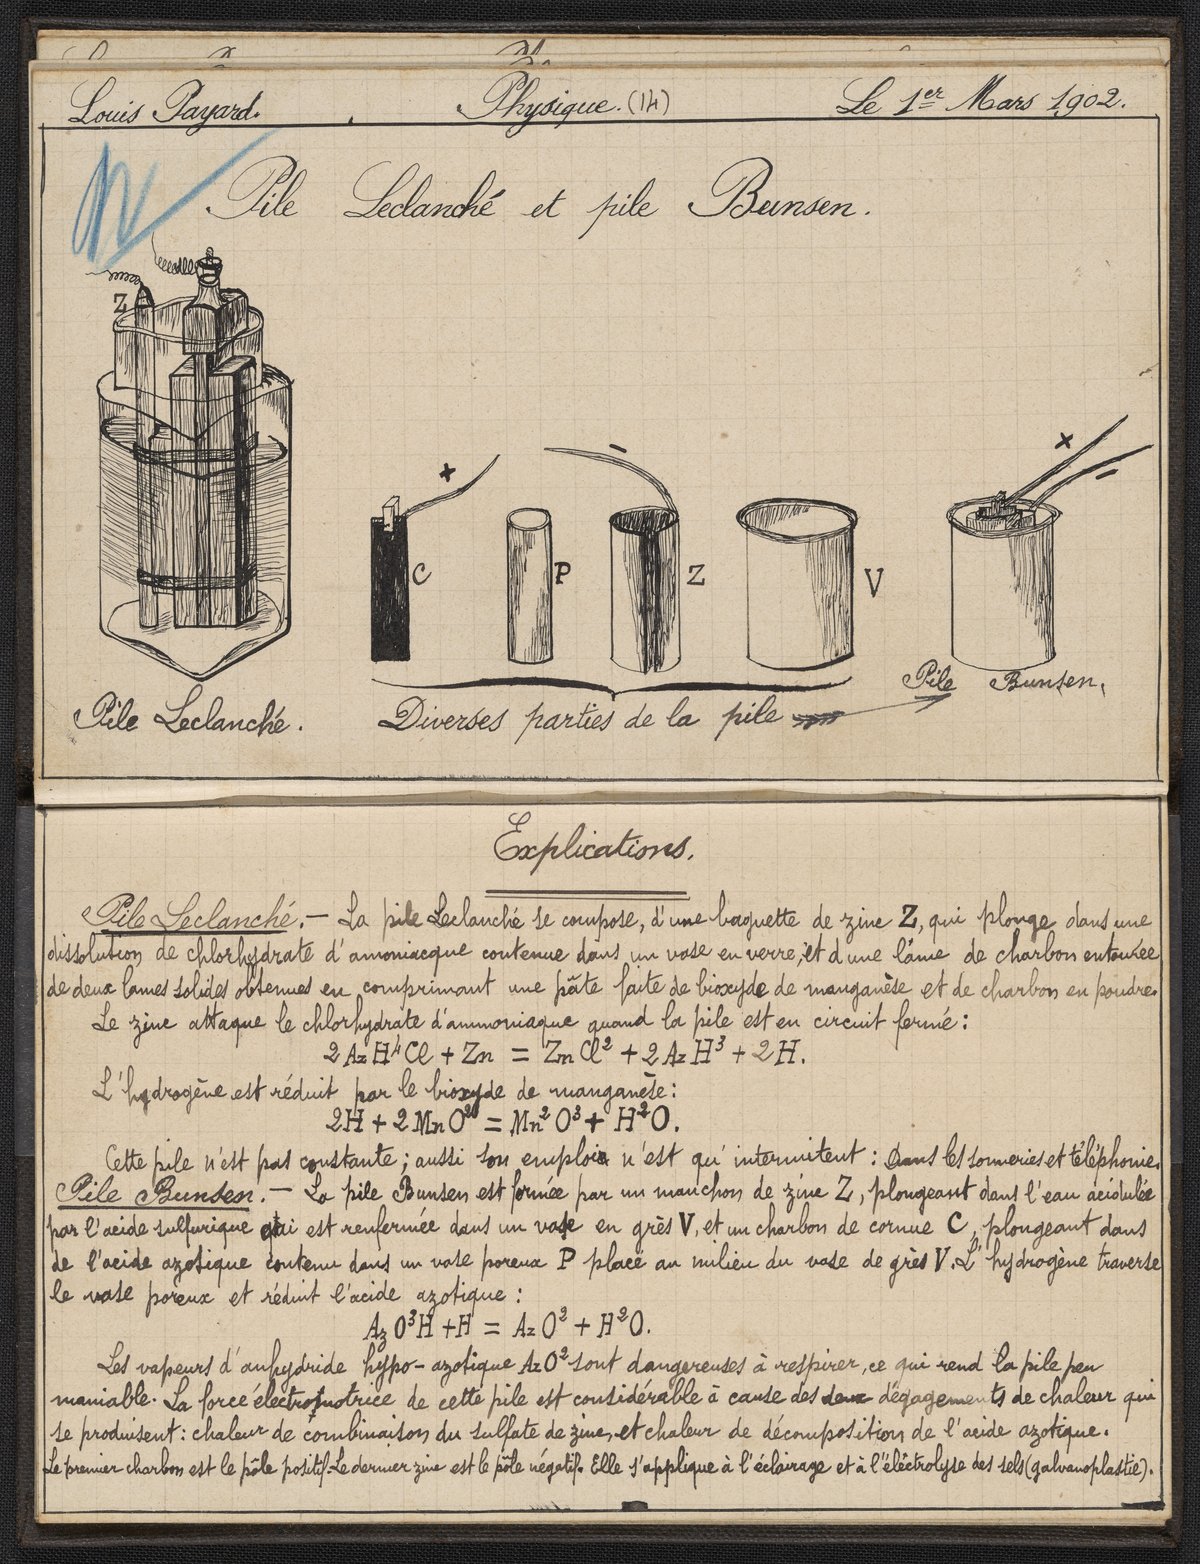 Louis Payard. Physique. (14) Le 1er Mars 1902.
Pile Leclanché et pile Bunsen.
Z
+
−
+
−
C
P
Z
V
Pile Leclanché.
Diverses parties de la pile
Pile Bunsen.
Explications.
Pile Leclanché. — La pile Leclanché se compose, d'une baguette de zinc Z, qui plonge dans une
dissolution de chlorhydrate d'amoniacque contenue dans un vase en verre, et d'une lâme de charbon entourée
de deux lames solides obtenues en comprimant une pâte faite de bioxyde de manganèse et de charbon en poudre.
Le zinc attaque le chlorhydrate d'ammoniaque quand la pile est en circuit fermé :
2 Az H⁴ Cl + Zn = Zn Cl² + 2 Az H³ + 2 H.
L'hydrogène est réduit par le bioxyde de manganèse :
2H + 2 Mn O² = Mn² O³ + H²O.
Cette pile n'est pas constante ; aussi son emploi n'est qu'intermitent : dans les sonneries et téléphonie.
Pile Bunsen. — La pile Bunsen est formée par un manchon de zinc Z, plongeant dans l'eau acidulée
par l'acide sulfurique qui est renfermée dans un vase en grès V, et un charbon de cornue C, plongeant dans
de l'acide azotique contenu dans un vase poreux P placé au milieu du vase de grès V. L'hydrogène traverse
le vase poreux et réduit l'acide azotique :
Az O³H + H = Az O² + H²O.
Les vapeurs d'anhydride hypo-azotique Az O² sont dangereuses à respirer, ce qui rend la pile peu
maniable. La force électromotrice de cette pile est considérable à cause des deux dégagements de chaleur qui
se produisent : chaleur de combinaison du sulfate de zinc, et chaleur de décomposition de l'acide azotique.
Le premier charbon est le pôle positif. Le dernier zinc est le pôle négatif. Elle s'applique à l'éclairage et à l'éléctrolyse des sels (galvanoplastie).